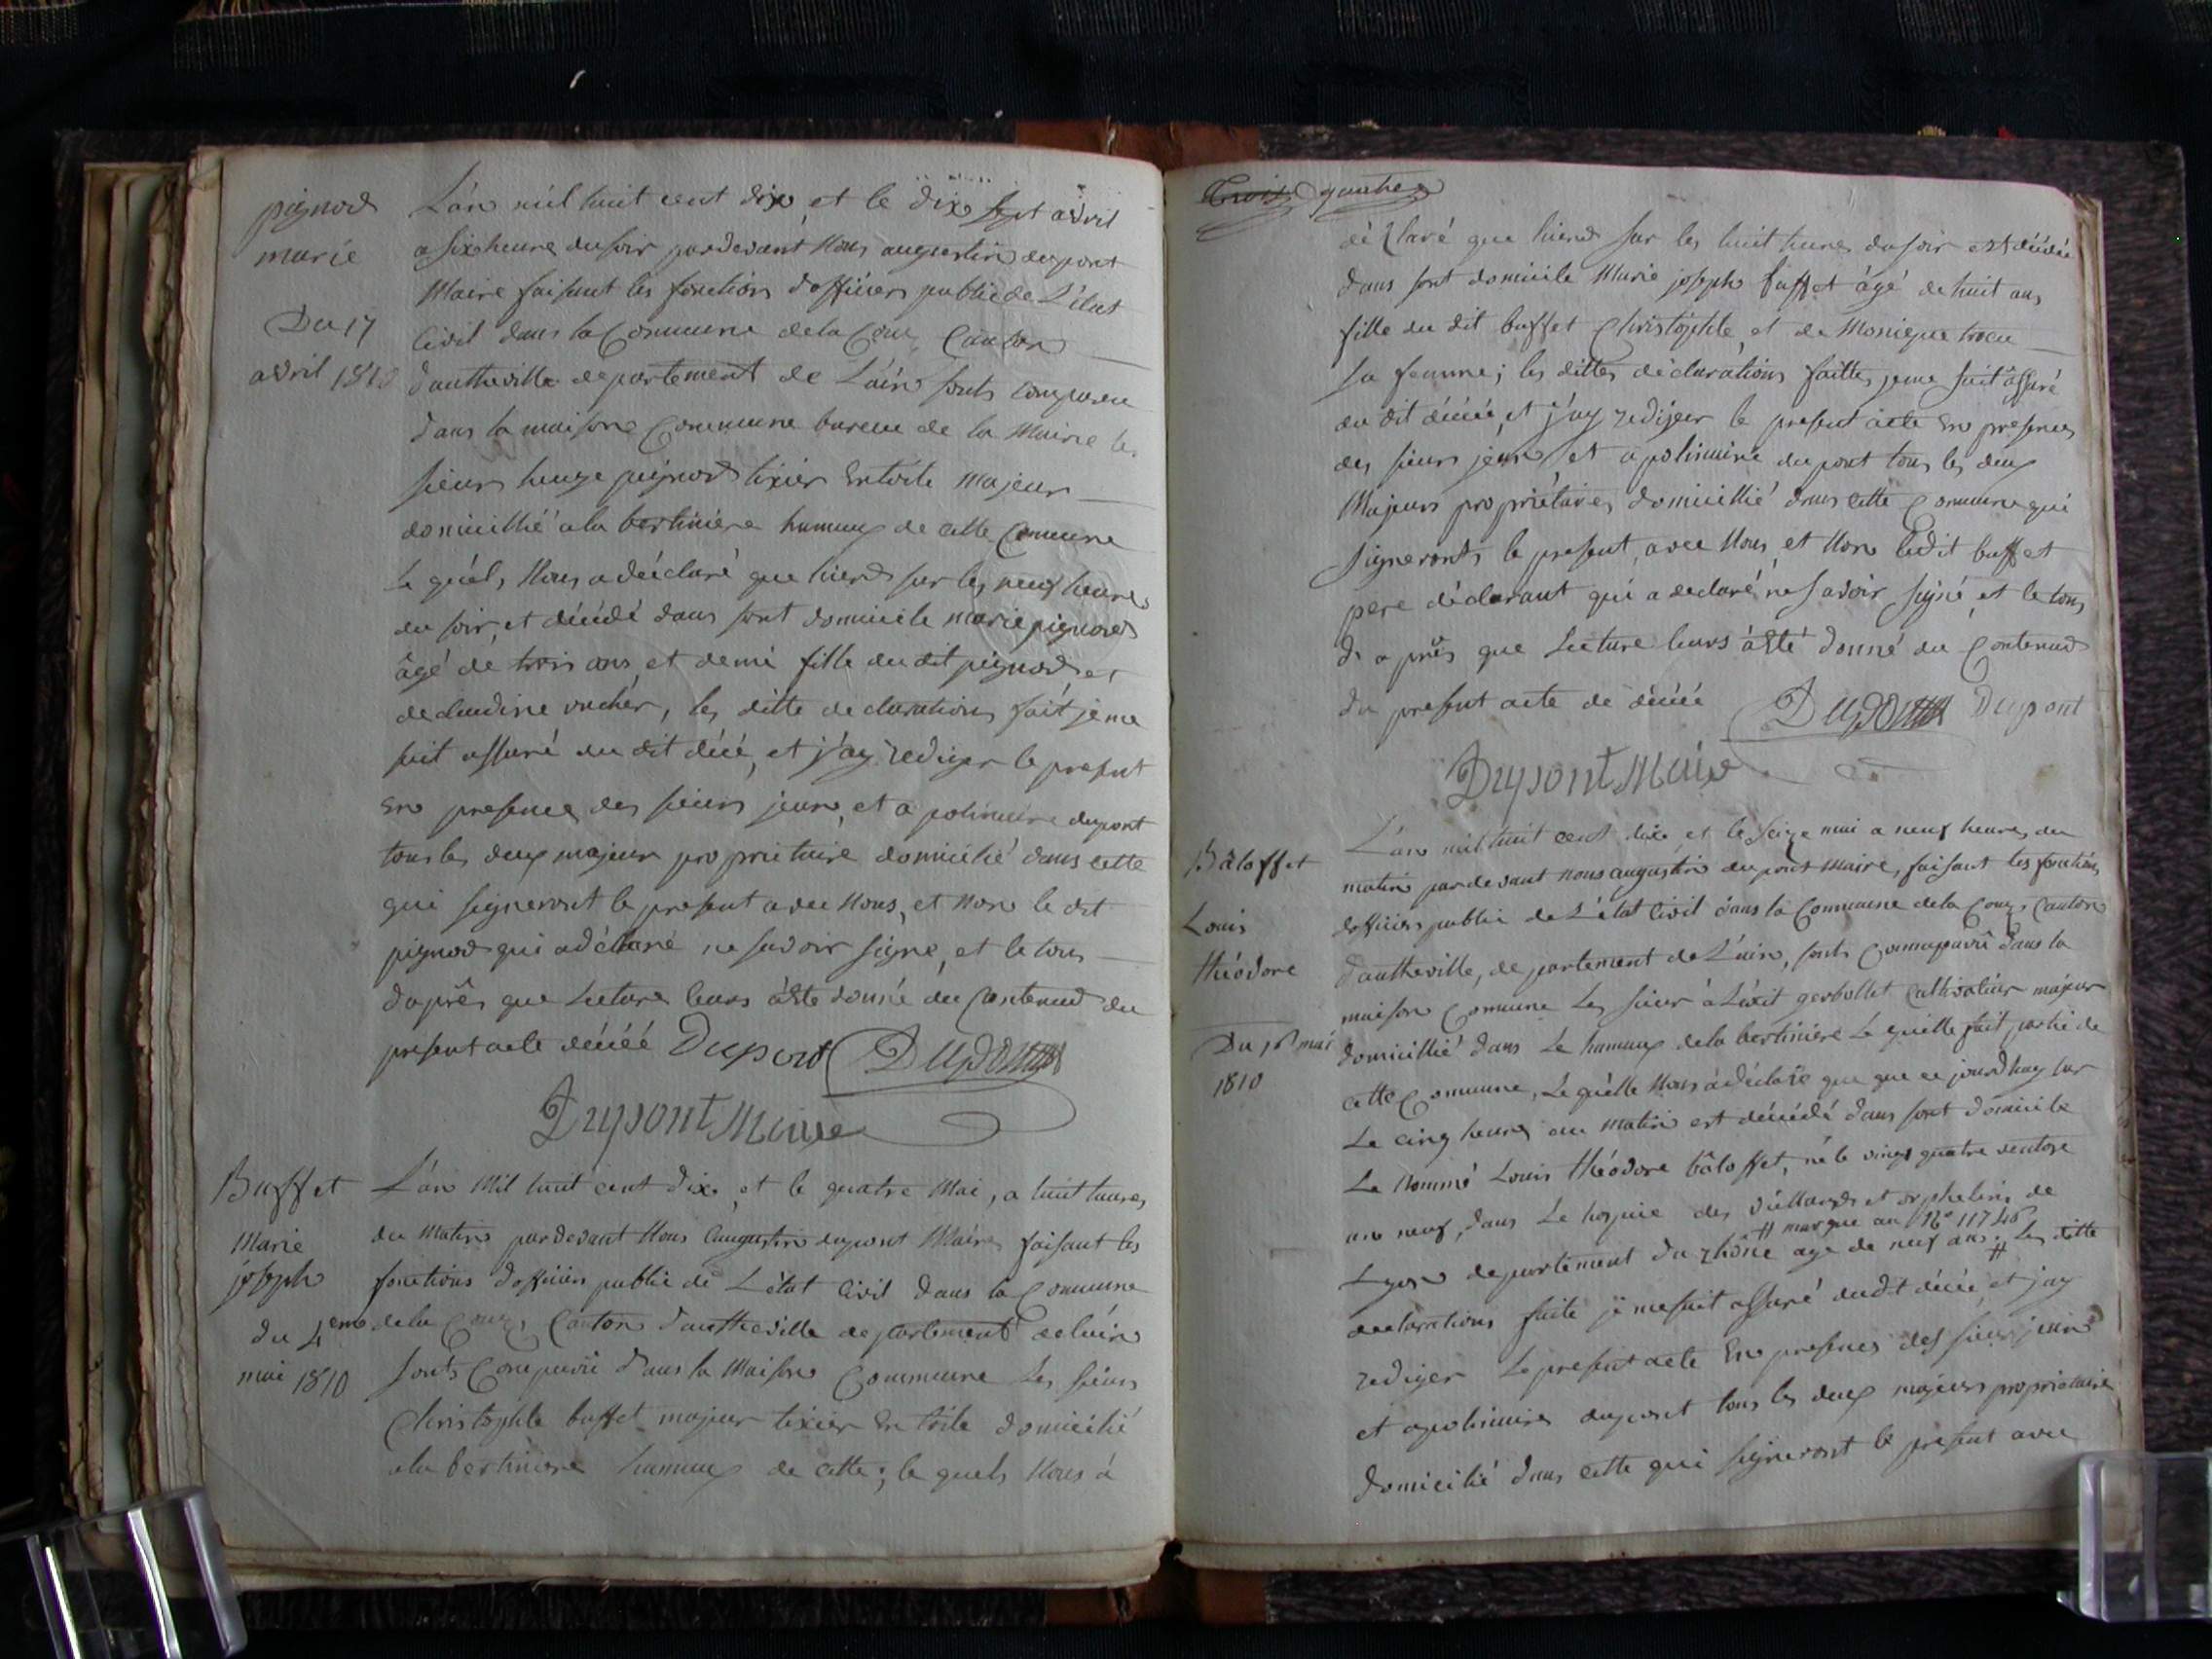 pignod
marie
Du 17
avril 1810
L'an mil huit cent dix, et le dix sept avril
a six heure du soir pardevant Nous augustin dupont
Maire faisant les fonction d'officier public de L'état
Civil dans la Commune de la Coux Canton
d'autheville departement de L'ain sonts comparu
dans la maison Commune bureau de la Mairie le
sieur pignod tixier En toile Majeur
domicillié a la bertiniere hameux de cette Comune
Le quél, Nous a déclaré que hierd sur les neuf heures
du soir, et décédé dans sont domicile marie pignod
âgé de trois ans et demi fille du dit pignod et
de claudine vucher, les ditte declaration fait je me
suit assuré du dit décé, et j'ay rediger le present
En presence des sieurs jean, et apolinaire dupont
tous les deux majeur proprietaire domicilié dans cette
qui signeront le present avec Nous, et Non le dit
pignod qui a déclaré ne savoir signe, et le tous
d'après que Lecture leurs àété donné du Contenud du
present acte décéé Dupont Dupont
Dupont Maire
Buffet
Marie
joseph
du 4eme
mai 1810
L'an Mil huit cent dix, et le quatre Mai, a huit heures
du Matin pardevant Nous augustin dupont Maire faisant les
fonctions d'officier public de L'état Civil dans la Commune
de la Coux, Canton d'autheville departement de l'ain
sonts Comparu dans la Maison Commune Les sieur
Christophle buffet majeur tixier En toile domicilié
a la bertiniere hameux de cette; le quels Nous à
Trois quatre
déclaré que hierd sur les huit heures du soir est décédé
dans sont domicile Marie joseph buffet âgé de huit ans
fille du dit buffet Christophle, et de Monique
sa femme; les dittes déclarations faittes je me suit assuré
du dit décéé, et j'ay redijer le present acte En presence
des sieurs jean et apolinaire dupont tous les deux
Majeurs propriétaires domicillié dans cette Commune qui
signeronts le present avec Nous, et Non ledit buffet
pere déclarant qui a declaré ne savoir signé, et le tous
d'après que Lecture leurs àété donné du Contenud
du present acte de décéé Dupont Dupont
Dupont Maire
Bâloffet
Louis
théodore
Du 16 mai
1810
L'an mil huit cent dix, et le seize mai a neuf heures du
matin pardevant nous augustin dupont Maire, faisant les fonctions
d'officier public de L'état Civil dans la Commune de la Coux, Canton
d'autheville, departement de L'ain, sonts Commparu dans la
maison Comune Les sieur àLéxit gerbollet Cultivatéur majeur
domicillié dans Le hameux de la bertiniére Le quélle fait partie de
cette Comune, Le quélle Nous à déclaré que que ce jourdhuy sur
Le cinq heures du matin est décédé dans sont domicile
Le Nommé Louis théodore bâloffet, né le vingt quatre ventose
an neuf, dans Le hospice des viellards et orphelins de
# marque au No 11748
Lyon departement du rhône age de neuf ans; # Les ditte
declarations faite je me suit assuré dudit décéé, et j'ay
rediger Le present acte En presences des sieurs jean
et apolinaire dupont tous les deux majeurs proprietaire
domicilié dans cette qui signeront le present avec